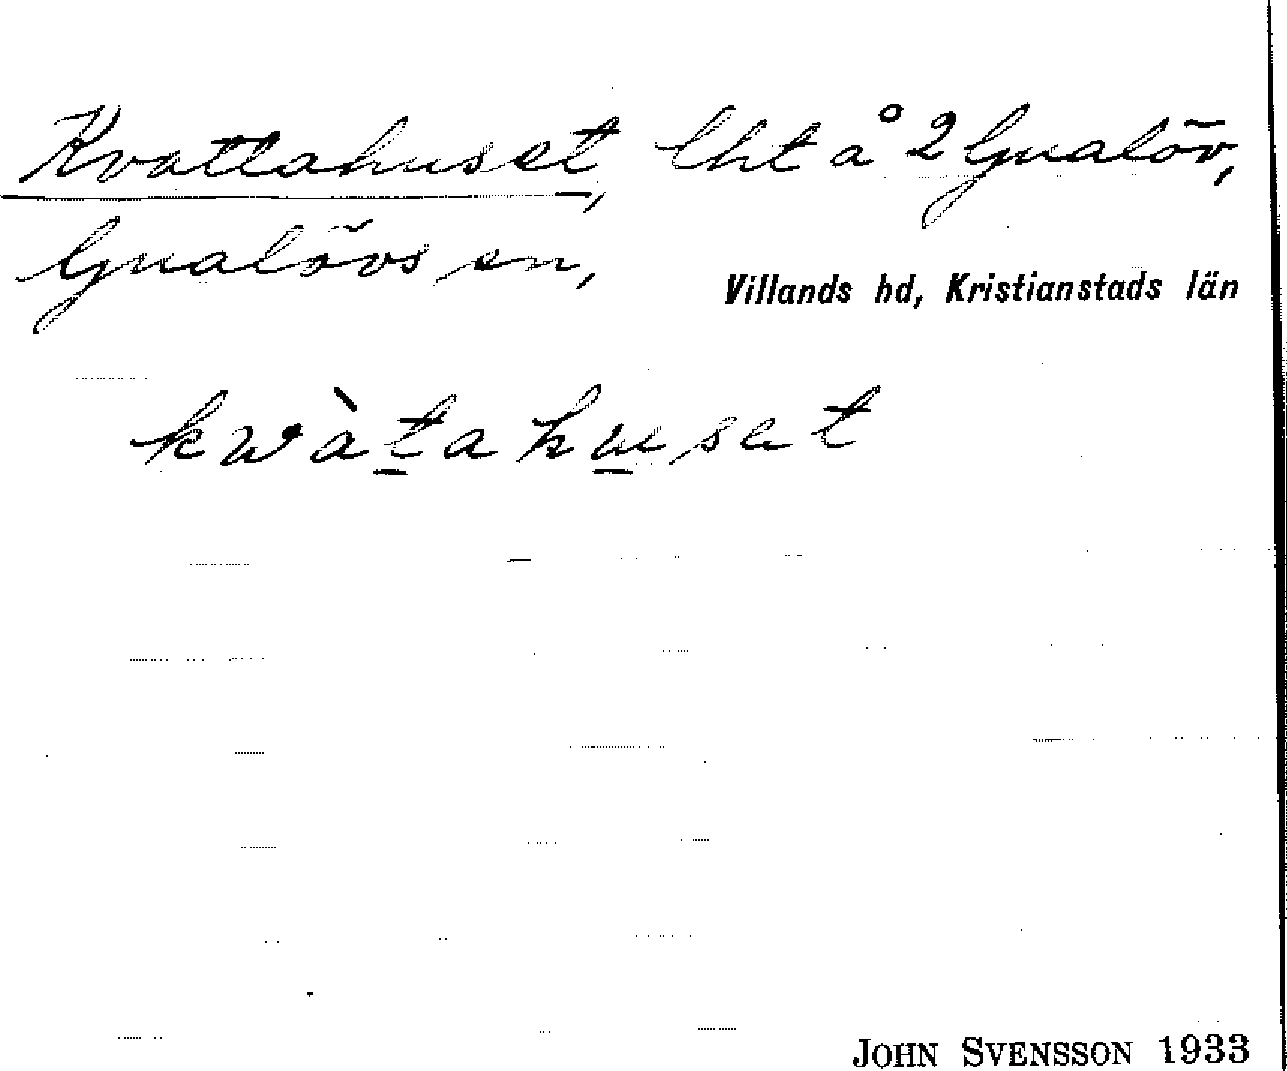 Kvattahuset, lht å 2 Gualöv,
Gualövs sn,
Villands hd, Kristianstads län
kwàtahusat
JOHN SVENSSON 1933